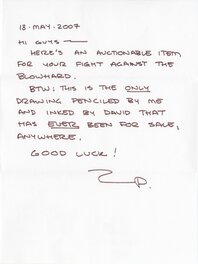 18·MAY·2007
HI GUYS —
HERE'S AN AUCTIONABLE ITEM
FOR YOUR FIGHT AGAINST THE
BLOWHARD.
BTW: THIS IS THE ONLY
DRAWING PENCILED BY ME
AND INKED BY DAVID THAT
HAS EVER BEEN FOR SALE,
ANYWHERE.
GOOD LUCK!